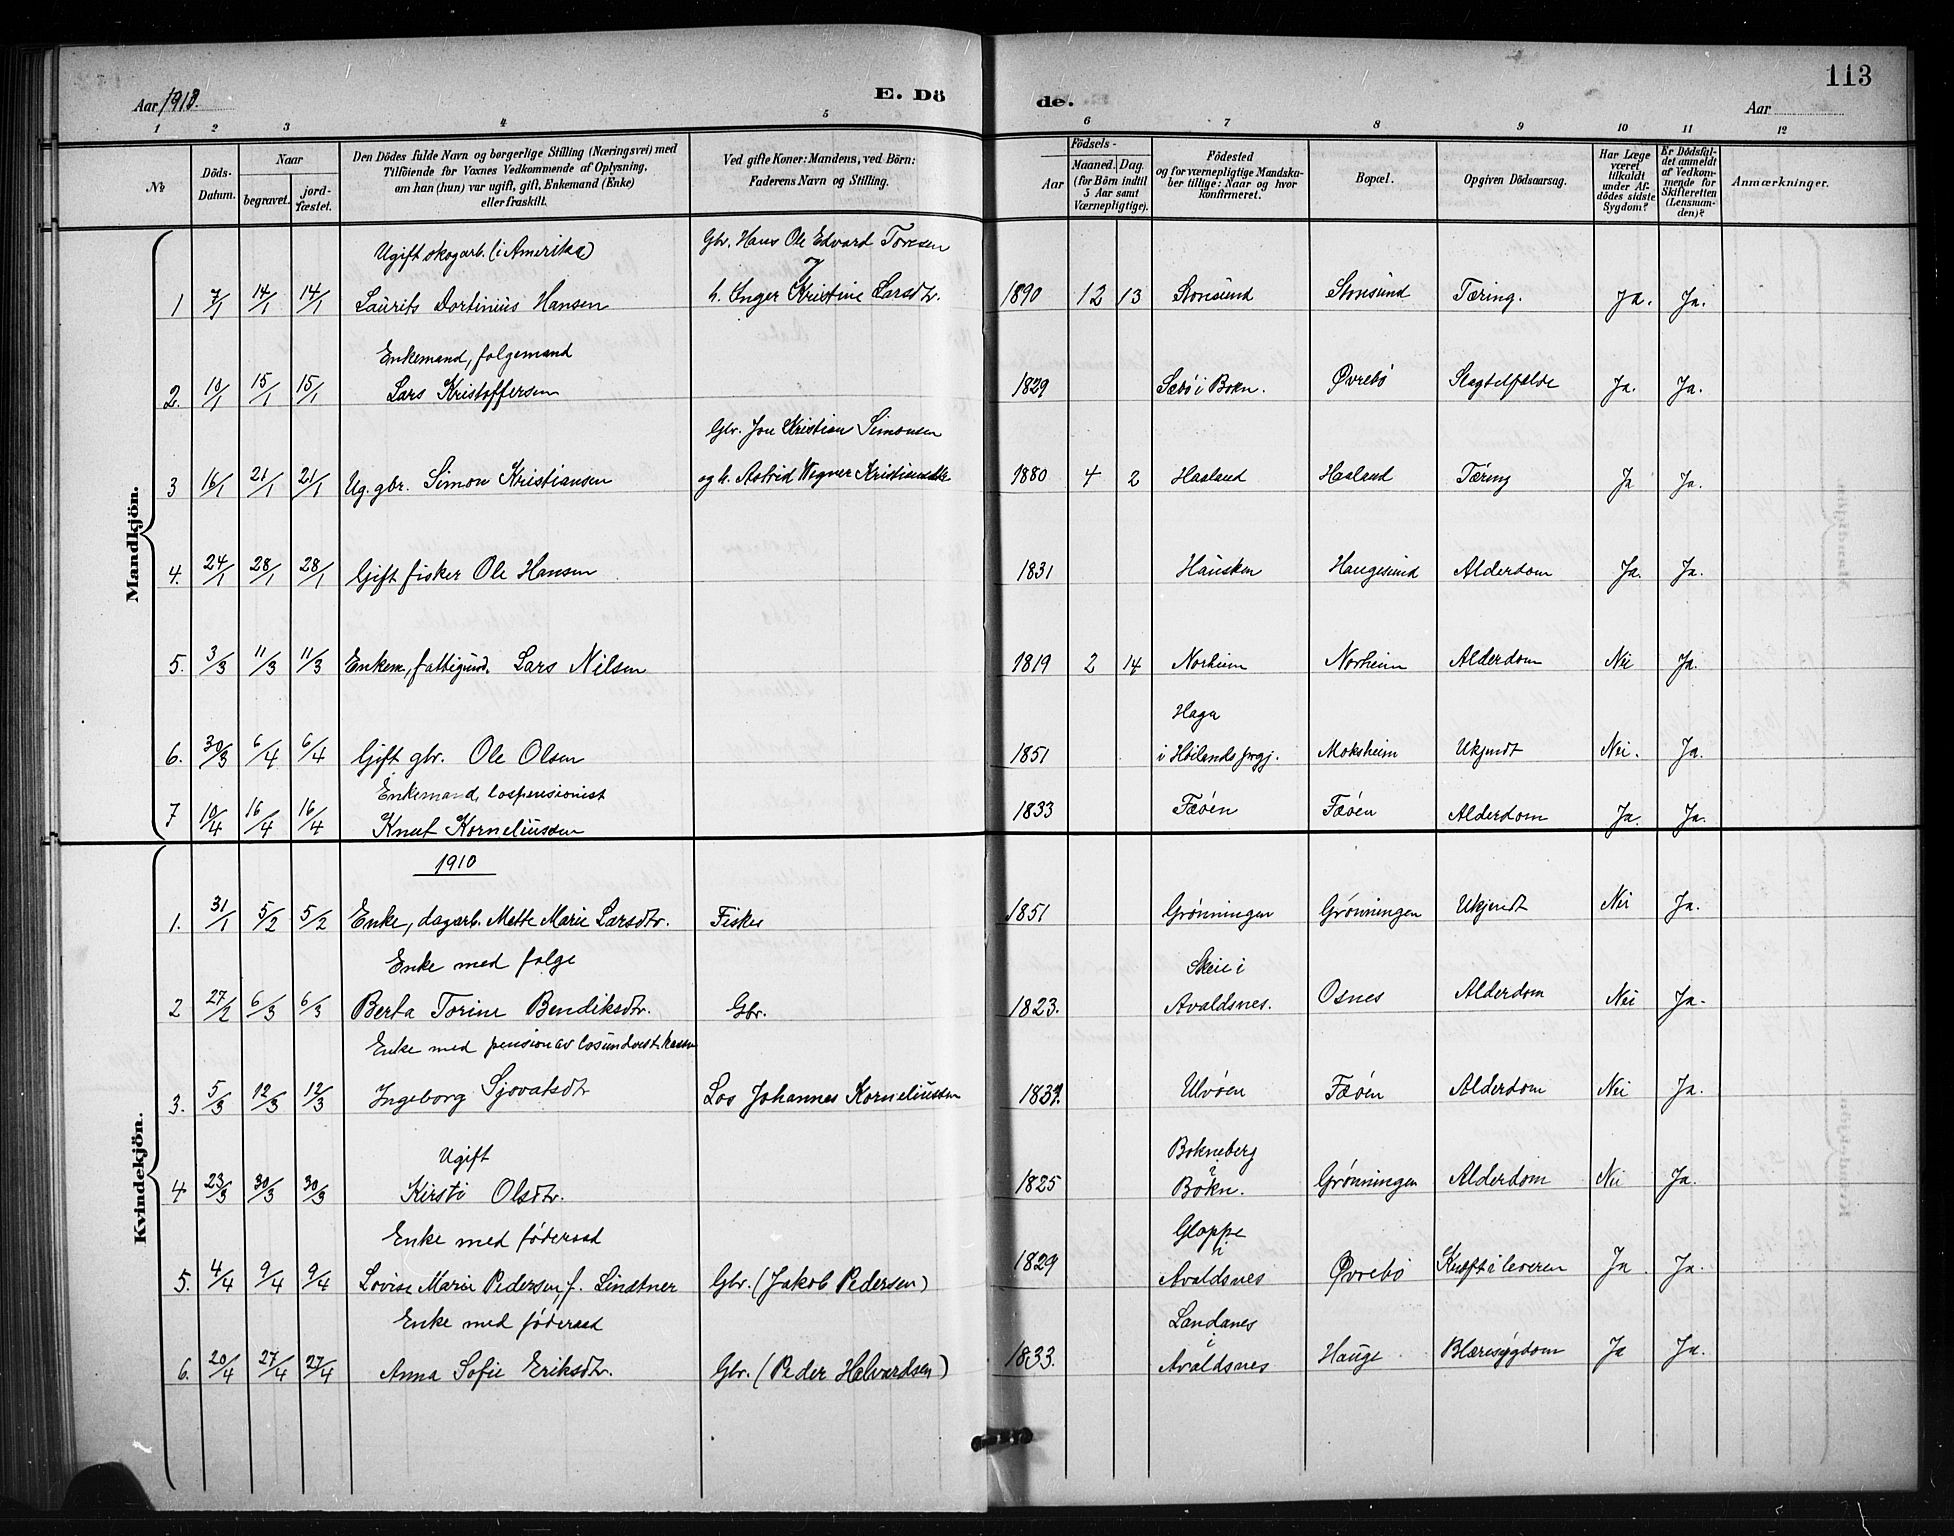 113
Aar 1913. E. Dö de. Aar
1 2 3 4 5 6 7 8 9 10 11 12
№
Döds-Datum.
Naar
begravet.
jord-fæstet.
Den Dödes fulde Navn og borgerlige Stilling (Næringsvei) med
Tilföiende for Voxnes Vedkommende af Oplysning,
om han (hun) var ugift, gift, Enkemand (Enke)
eller fraskilt.
Ved gifte Koner: Mandens, ved Börn:
Faderens Navn og Stilling.
Födsels-
Aar
Maaned.
Dag.
(for Börn indtil
5 Aar samt
Værnepligtige).
Födested
og for værnepligtige Mandska-
ber tillige: Naar og hvor
konfirmeret.
Bopæl.
Opgiven Dödsaarsag.
Har Læge
været
tilkaldt
under Af-
dödes sidste
Sygdom?
Er Dödsfal-
det anmeldt
af Vedkom-
mende for
Skifteretten
(Lensman-
den)?
Anmærkninger.
Mandkjön.
Ugift skogarb. (i Amerika) Gbr. Hans Ole Edvard Toresen
1 7/1 14/1 14/1 Laurits Dortinius Hansen h. Inger Kristine Larsdtr. 1890 12 13 Storesund Storesund Tæring. Ja. Ja.
Enkemand, folgemand
2. 10/1 15/1 15/1 Lars Kristoffersen 1829 Sæbö i Bokn. Øvrebö Slagtilfælde Ja. Ja.
Gbr. Jon Kristian Simonsen
3 16/1 21/1 21/1 Ug. gbr. Simon Kristiansen og h. Astrid Wegner Kristiansdtr 1880 4 2 Haaland Haaland Tæring Ja Ja.
4. 24/1 28/1 28/1 Gift fisker Ole Hansen 1831 Hausken Haugesund Alderdom Ja. Ja.
5. 3/3 11/3 11/3 Enkem., fattigund. Lars Nilsen 1819 2 14 Norheim Norheim Alderdom Nei Ja.
Haga
6. 30/3 6/4 6/4 Gift gbr. Ole Olsen 1851 i Höilands prgj. Moksheim Ukjendt Nei. Ja.
Enkemand, lospensionist
7 10/4 16/4 16/4 Knut Korneliussen 1833 Fæöen Fæöen Alderdom Ja. Ja.
Kvindekjön.
1910
1. 31/1 5/2 5/2 Enke, dagarb. Mette Marie Larsdtr. Fisker 1851 Grönningen Grönningen Ukjendt Nei Ja.
Enke med folge Skeie i
2 27/2 6/3 6/3 Berta Torine Bendiksdtr. Gbr. 1823. Avaldsnes. Osnes Alderdom Nei Ja.
Enke med pension av losunderst. kassen
3. 5/3 12/3 12/3 Ingeborg Sjovatsdtr Los Johannes Korneliussen Ulvöen Fæöen Alderdom Nei Ja.
Ugift Bokneberg
i
4 23/3 30/3 30/3 Kirsti Olsdtr. 1825 Bokn. Grönningen Alderdom Nei Ja.
Enke med föderaad Gloppe
i
5. 4/4 9/4 9/4 Lovise Marie Pedersen, f. Lindtner Gbr. (Jakob Pedersen) 1829 Avaldsnes Øvrebö Kræft i leveren Ja. Ja.
Enke med föderaad Landanes
i
6. 20/4 27/4 27/4 Anna Sofie Eriksdtr. Gbr. (Peder Halvardsen) 1833. Avaldsnes Hauge Blæresygdom Ja Ja.